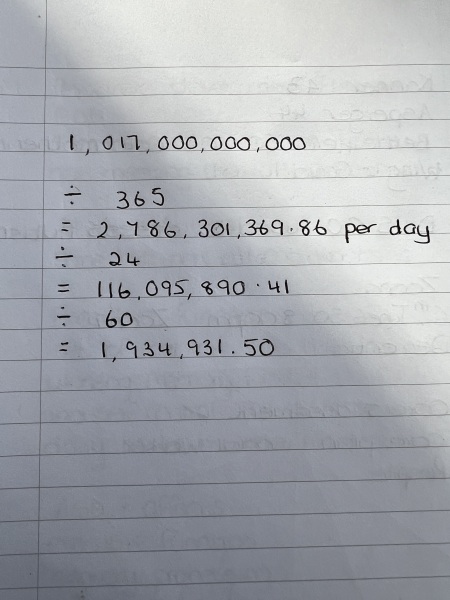 1,017,000,000,000
÷ 365
= 2,786,301,369.86 per day
÷ 24
= 116,095,890.41
÷ 60
= 1,934,931.50